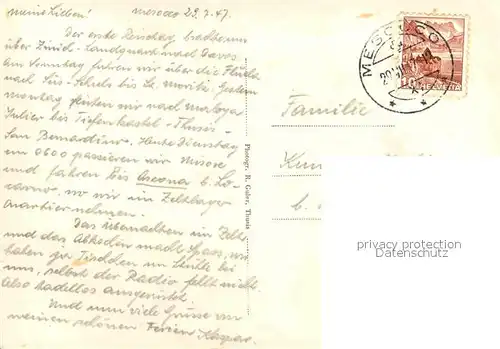 meine Lieben! Mesocco 29.7.47.
Der erste Reisetag brachte uns
über Zürich - Landquart nach Davos
Am Sonntag fuhren wir über die Flüela
nach Süs - Schuls bis St. Moritz. Gestern
montag fuhren wir nach Maloja
Julier bis Tiefenkastel - Thusis -
San Bernardino. Heute Dienstag
um 0600 passieren wir Misox
und fahren bis Ascona b. Lo-
carno, wo wir im Zeltlager
Quartier nehmen.
Das Übernachten im Zelt
und das Abkochen macht Spass, wir
haben zu Tischlein im Stühle bei
uns, selbst der Radio fehlt nicht.
Also tadellos ausgerüstet.
Und nun viele Grüsse von
meinen schönen Ferien Kaspar.
Photogr. R. Guler, Thusis
MESOCCO
HELVETIA
Familie
b.
privacy protection
Datenschutz